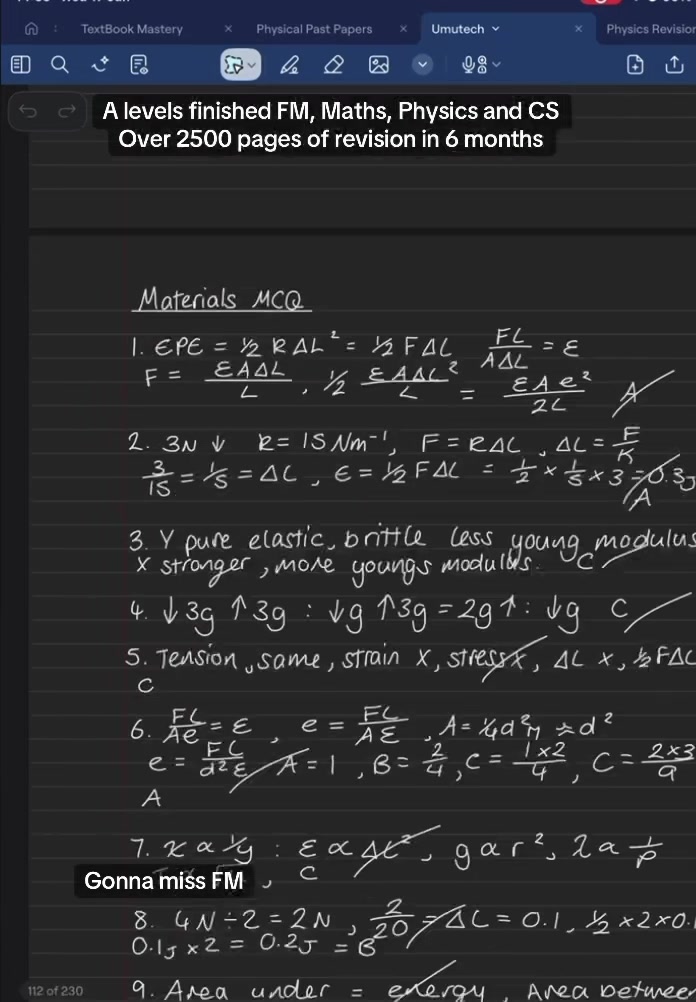 TextBook Mastery × Physical Past Papers × Umutech × Physics Revision
A levels finished FM, Maths, Physics and CS
Over 2500 pages of revision in 6 months
Materials MCQ
1. EPE = ½ k ΔL² = ½ F ΔL FL/AΔL = E
F = EAΔL/L , ½ EAΔL²/L = EAe²/2L A
2. 3N ↓ k = 15 Nm⁻¹, F = kΔL , ΔL = F/K
3/15 = 1/5 = ΔL , E = ½ F ΔL = ½ × 1/5 × 3 = 0.3J
A
3. Y pure elastic, brittle less young modulus
X stronger, more youngs modulus. C
4. ↓3g ↑3g : ↓g ↑3g = 2g↑ : ↓g C
5. Tension, same, strain X, stress X, ΔL X, ½FΔL
C
6. FL/Ae = E , e = FL/AE , A = ¼d²π ≈ d²
e = FL/d²E A = 1 , B = 2/4 , C = 1×2/4 , C = 2×3/9
A
7. x α 1/y : E ∝ ΔL² , g α r² , λ α 1/p
C
Gonna miss FM
8. 4N ÷ 2 = 2N , 2/20 = ΔL = 0.1 , ½ × 2 × 0.1
0.1J × 2 = 0.2J = B
9. Area under = energy, Area between
112 of 230